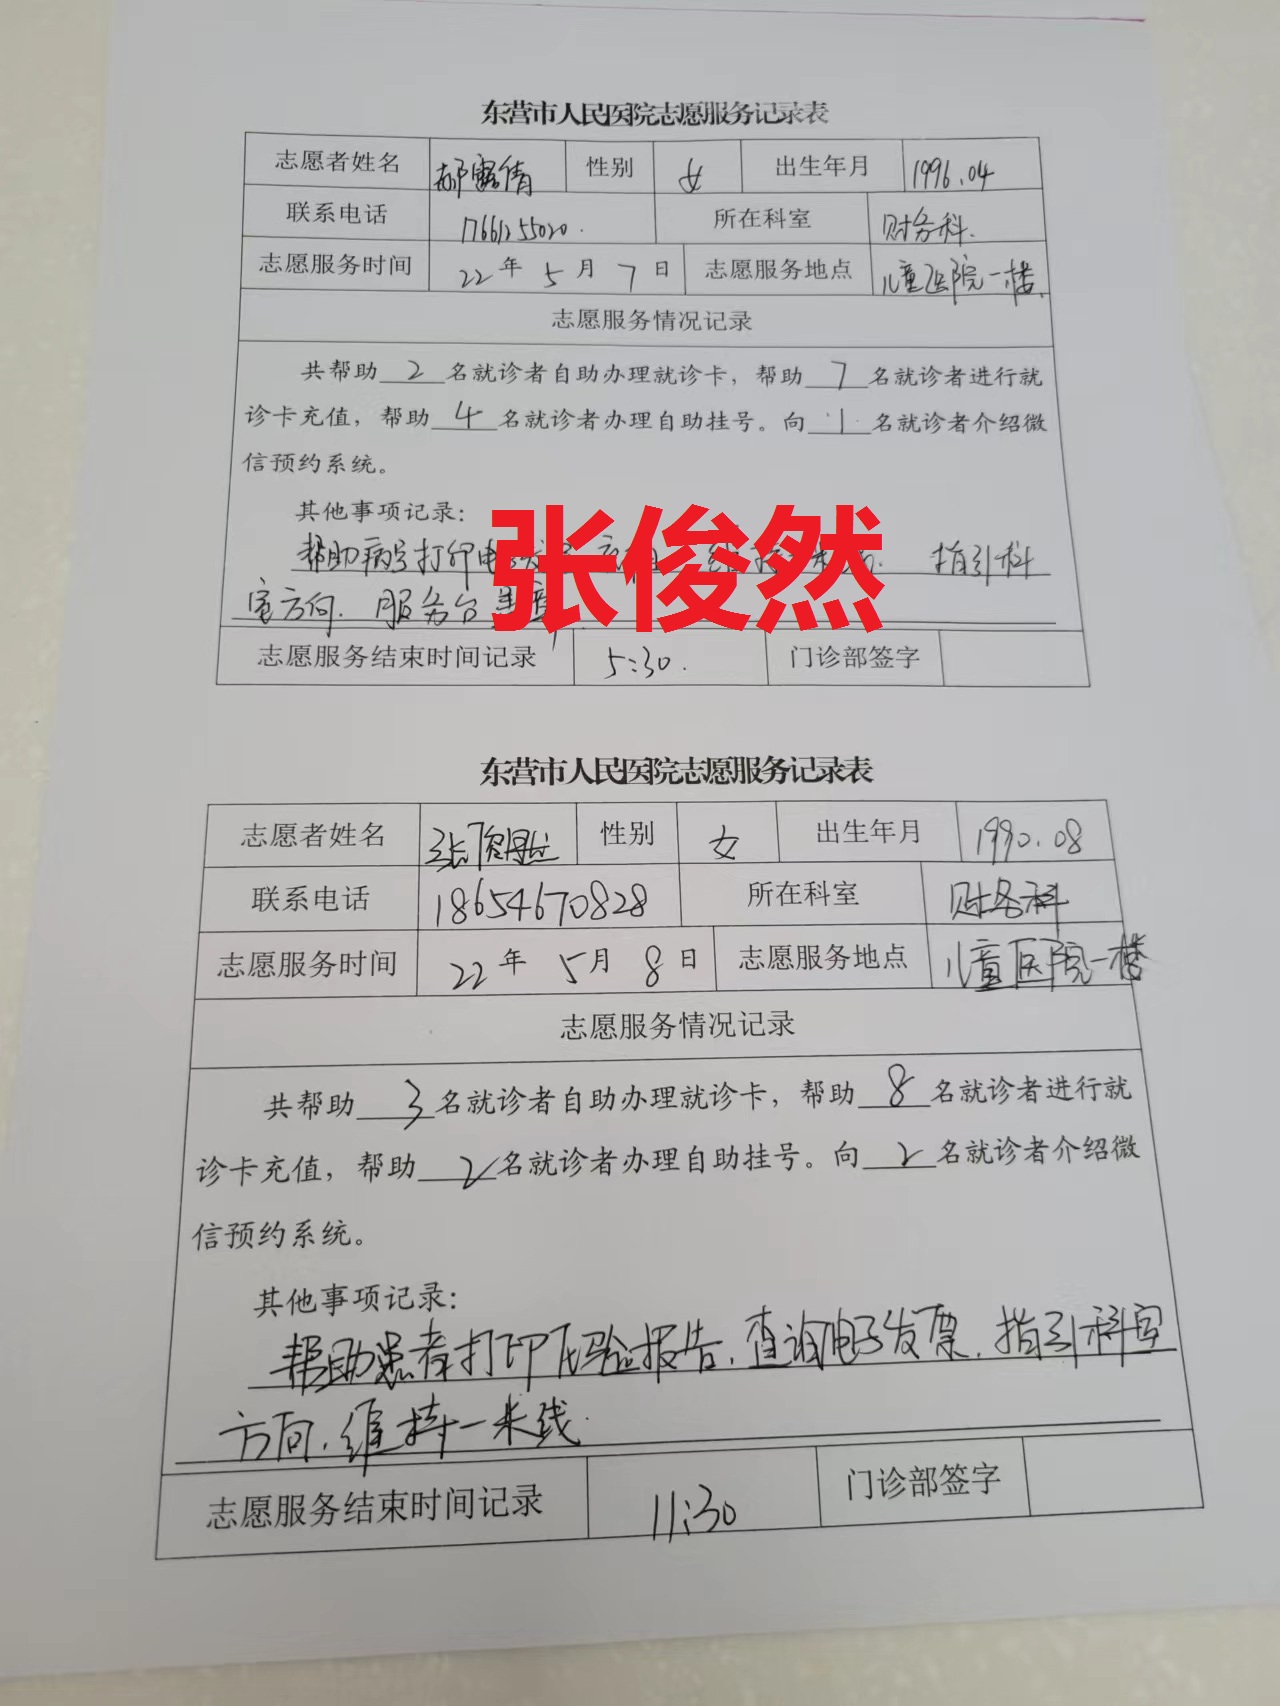 东营市人民医院志愿服务记录表
志愿者姓名 郝露倩 性别 女 出生年月 1996.04
联系电话 17661255020. 所在科室 财务科.
志愿服务时间 22年5月7日 志愿服务地点 儿童医院一楼.
志愿服务情况记录
共帮助2名就诊者自助办理就诊卡，帮助7名就诊者进行就
诊卡充值，帮助4名就诊者办理自助挂号。向1名就诊者介绍微
信预约系统。
其他事项记录：
张俊然
帮助病号打印电 指引科
室方向. 服务台
志愿服务结束时间记录 5:30. 门诊部签字
东营市人民医院志愿服务记录表
志愿者姓名 张 性别 女 出生年月 1990.08
联系电话 18654670828 所在科室 财务科
志愿服务时间 22年5月8日 志愿服务地点 儿童医院一楼
志愿服务情况记录
共帮助3名就诊者自助办理就诊卡，帮助8名就诊者进行就
诊卡充值，帮助2名就诊者办理自助挂号。向2名就诊者介绍微
信预约系统。
其他事项记录：
帮助患者打印化验报告.查询电子发票.指引科室
方向.维持一米线.
志愿服务结束时间记录 11:30 门诊部签字